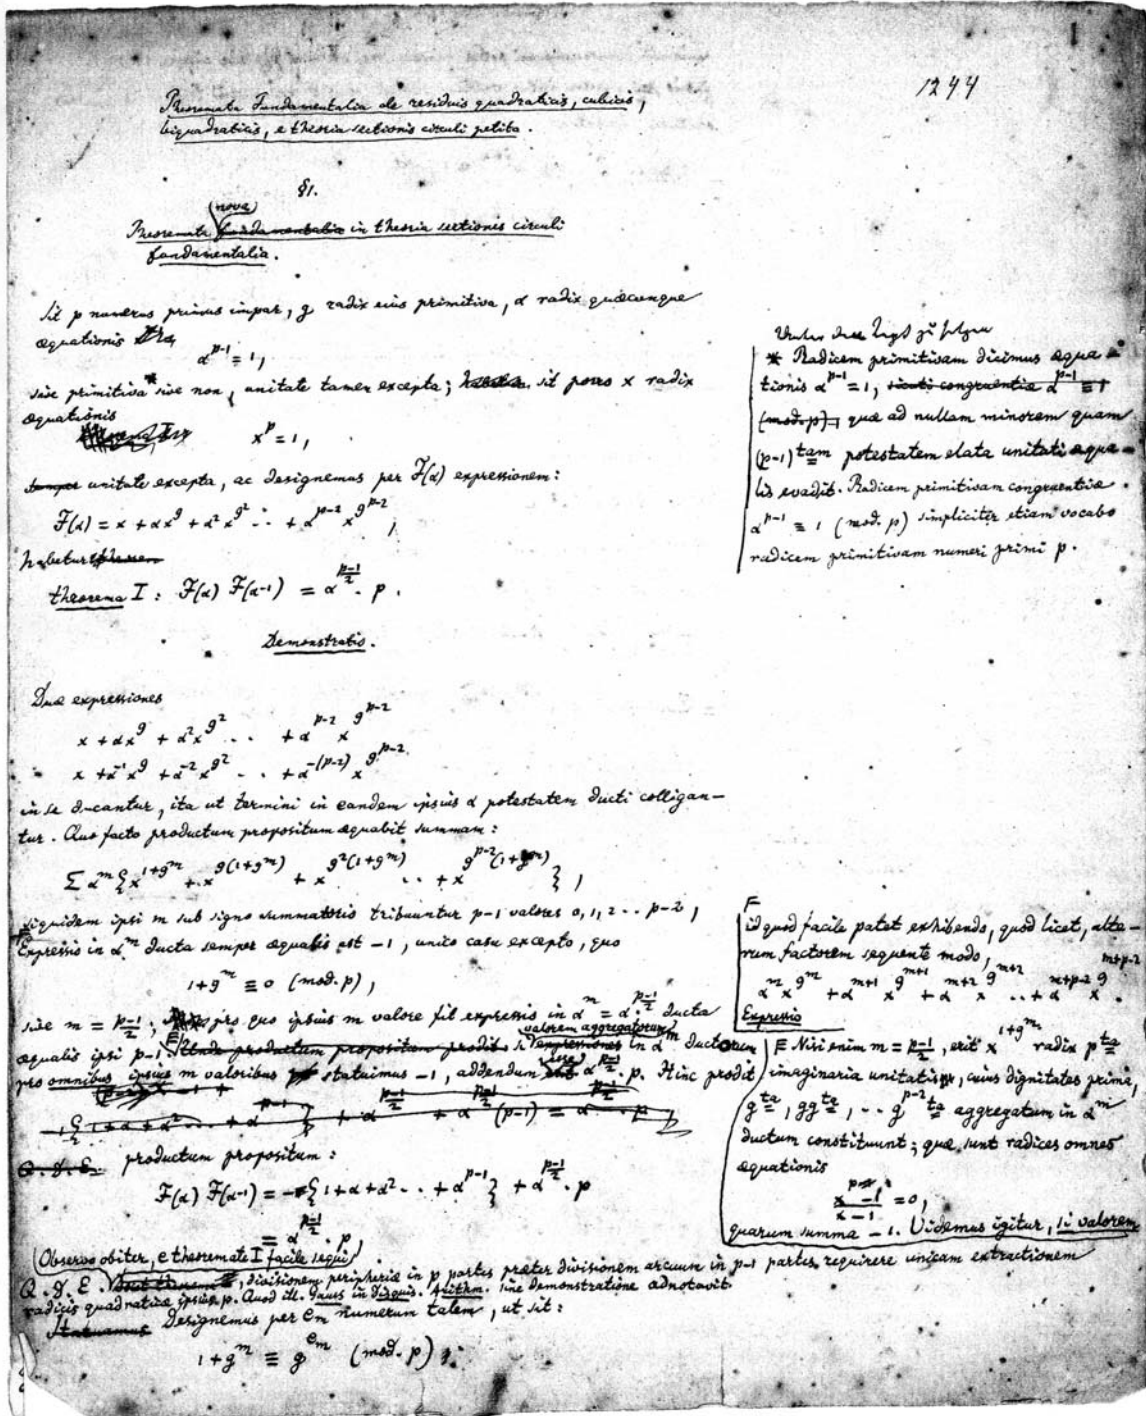 1244
Theoremata Fundamentalia de residuis quadraticis, cubicis,
biquadraticis, e theoria sectionis circuli petita.
§1.
nova
Theoremata fundamentalia in theoria sectionis circuli
fundamentalia.
Sit p numerus primus impar, g radix eius primitiva, α radix quæcunque
æquationis
α^{p-1} = 1,
sive primitiva* sive non, unitate tamen excepta; sit porro x radix
æquationis
x^p = 1,
unitate excepta, ac designemus per F(α) expressionem:
F(α) = x + αx^g + α^2 x^{g^2} .. + α^{p-2} x^{g^{p-2}},
habetur
theorema I: F(α) F(α^{-1}) = α^{\frac{p-1}{2}} . p .
Demonstratio.
Duæ expressiones
x + αx^g + α^2 x^{g^2} .. + α^{p-2} x^{g^{p-2}}
x + α^{-1} x^g + α^{-2} x^{g^2} .. + α^{-(p-2)} x^{g^{p-2}}
in se ducantur, ita ut termini in eandem ipsius α potestatem ducti colligan-
tur. Quo facto productum propositum æquabit summam:
Σ α^m { x^{1+g^m} + x^{g(1+g^m)} + x^{g^2(1+g^m)} .. + x^{g^{p-2}(1+g^m)} } ,
siquidem ipsi m sub signo summatorio tribuuntur p-1 valores 0, 1, 2 .. p-2 ,
Expressio in α^m ducta semper æqualis est -1, unico casu excepto, quo
1 + g^m ≡ 0 (mod. p) ,
sive m = \frac{p-1}{2} ; pro quo ipsius m valore fit expressio in α^m = α^{\frac{p-1}{2}} ducta
valorem aggregatorum
æqualis ipsi p-1. Unde productum propositum prodit si expressiones in α^m ductorum
pro omnibus ipsius m valoribus statuimus -1, addendum esse α^{\frac{p-1}{2}} . p. Hinc prodit
{ 1 + α + α^2 .. + α^{p-1} } + α^{\frac{p-1}{2}} + α^{\frac{p-1}{2}} (p-1) = α^{\frac{p-1}{2}} . p
Q. D. E. productum propositum:
F(α) F(α^{-1}) = -{ 1 + α + α^2 .. + α^{p-1} } + α^{\frac{p-1}{2}} . p
= α^{\frac{p-1}{2}} . p ,
Observo obiter, e theoremate I facile sequi
Q. D. E. , divisionem peripheriæ in p partes præter divisionem arcuum in p-1 partes, requirere unicam extractionem
radicis quadraticæ ipsius p. Quod ill. Gauss in disquis. Arithm. sine demonstratione adnotavit
Statuamus Designemus per e_m numerum talem, ut sit:
1 + g^m ≡ g^{e_m} (mod. p) ;
Unter den Text zu setzen
* Radicem primitivam dicimus æqua-
tionis α^{p-1} = 1, sicuti congruentiæ α^{p-1} ≡ 1
(mod. p), quæ ad nullam minorem quam
(p-1)^{tam} potestatem elata unitati æqua-
lis evadit. Radicem primitivam congruentiæ
α^{p-1} ≡ 1 (mod. p) simpliciter etiam vocabo
radicem primitivam numeri primi p.
id quod facile patet exhibendo, quod licet, alte-
rum factorem sequente modo,
α^m x^{g^m} + α^{m+1} x^{g^{m+1}} + α^{m+2} x^{g^{m+2}} .. + α^{m+p-2} x^{g^{m+p-2}} .
Expressio
Nisi enim m = \frac{p-1}{2}, erit x^{1+g^m} radix p^{ta}
imaginaria unitatis, cuius dignitates prima,
g^{ta}, gg^{ta}, .. g^{p-2 ta} aggregatum in α^m
ductum constituunt; quæ sunt radices omnes
æquationis
\frac{x^p - 1}{x - 1} = 0,
quarum summa -1. Videmus igitur, si valorem